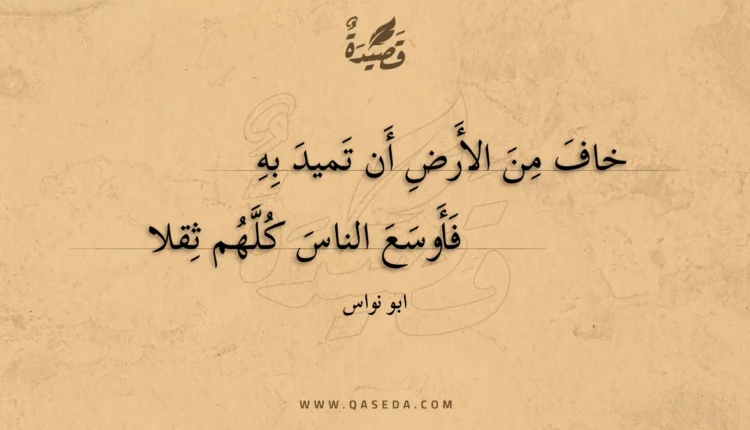 قَصِيْدَةٌ
خافَ مِنَ الأَرضِ أَن تَميدَ بِهِ
فَأَوسَعَ الناسَ كُلَّهُم ثِقلا
ابو نواس
WWW.QASEDA.COM